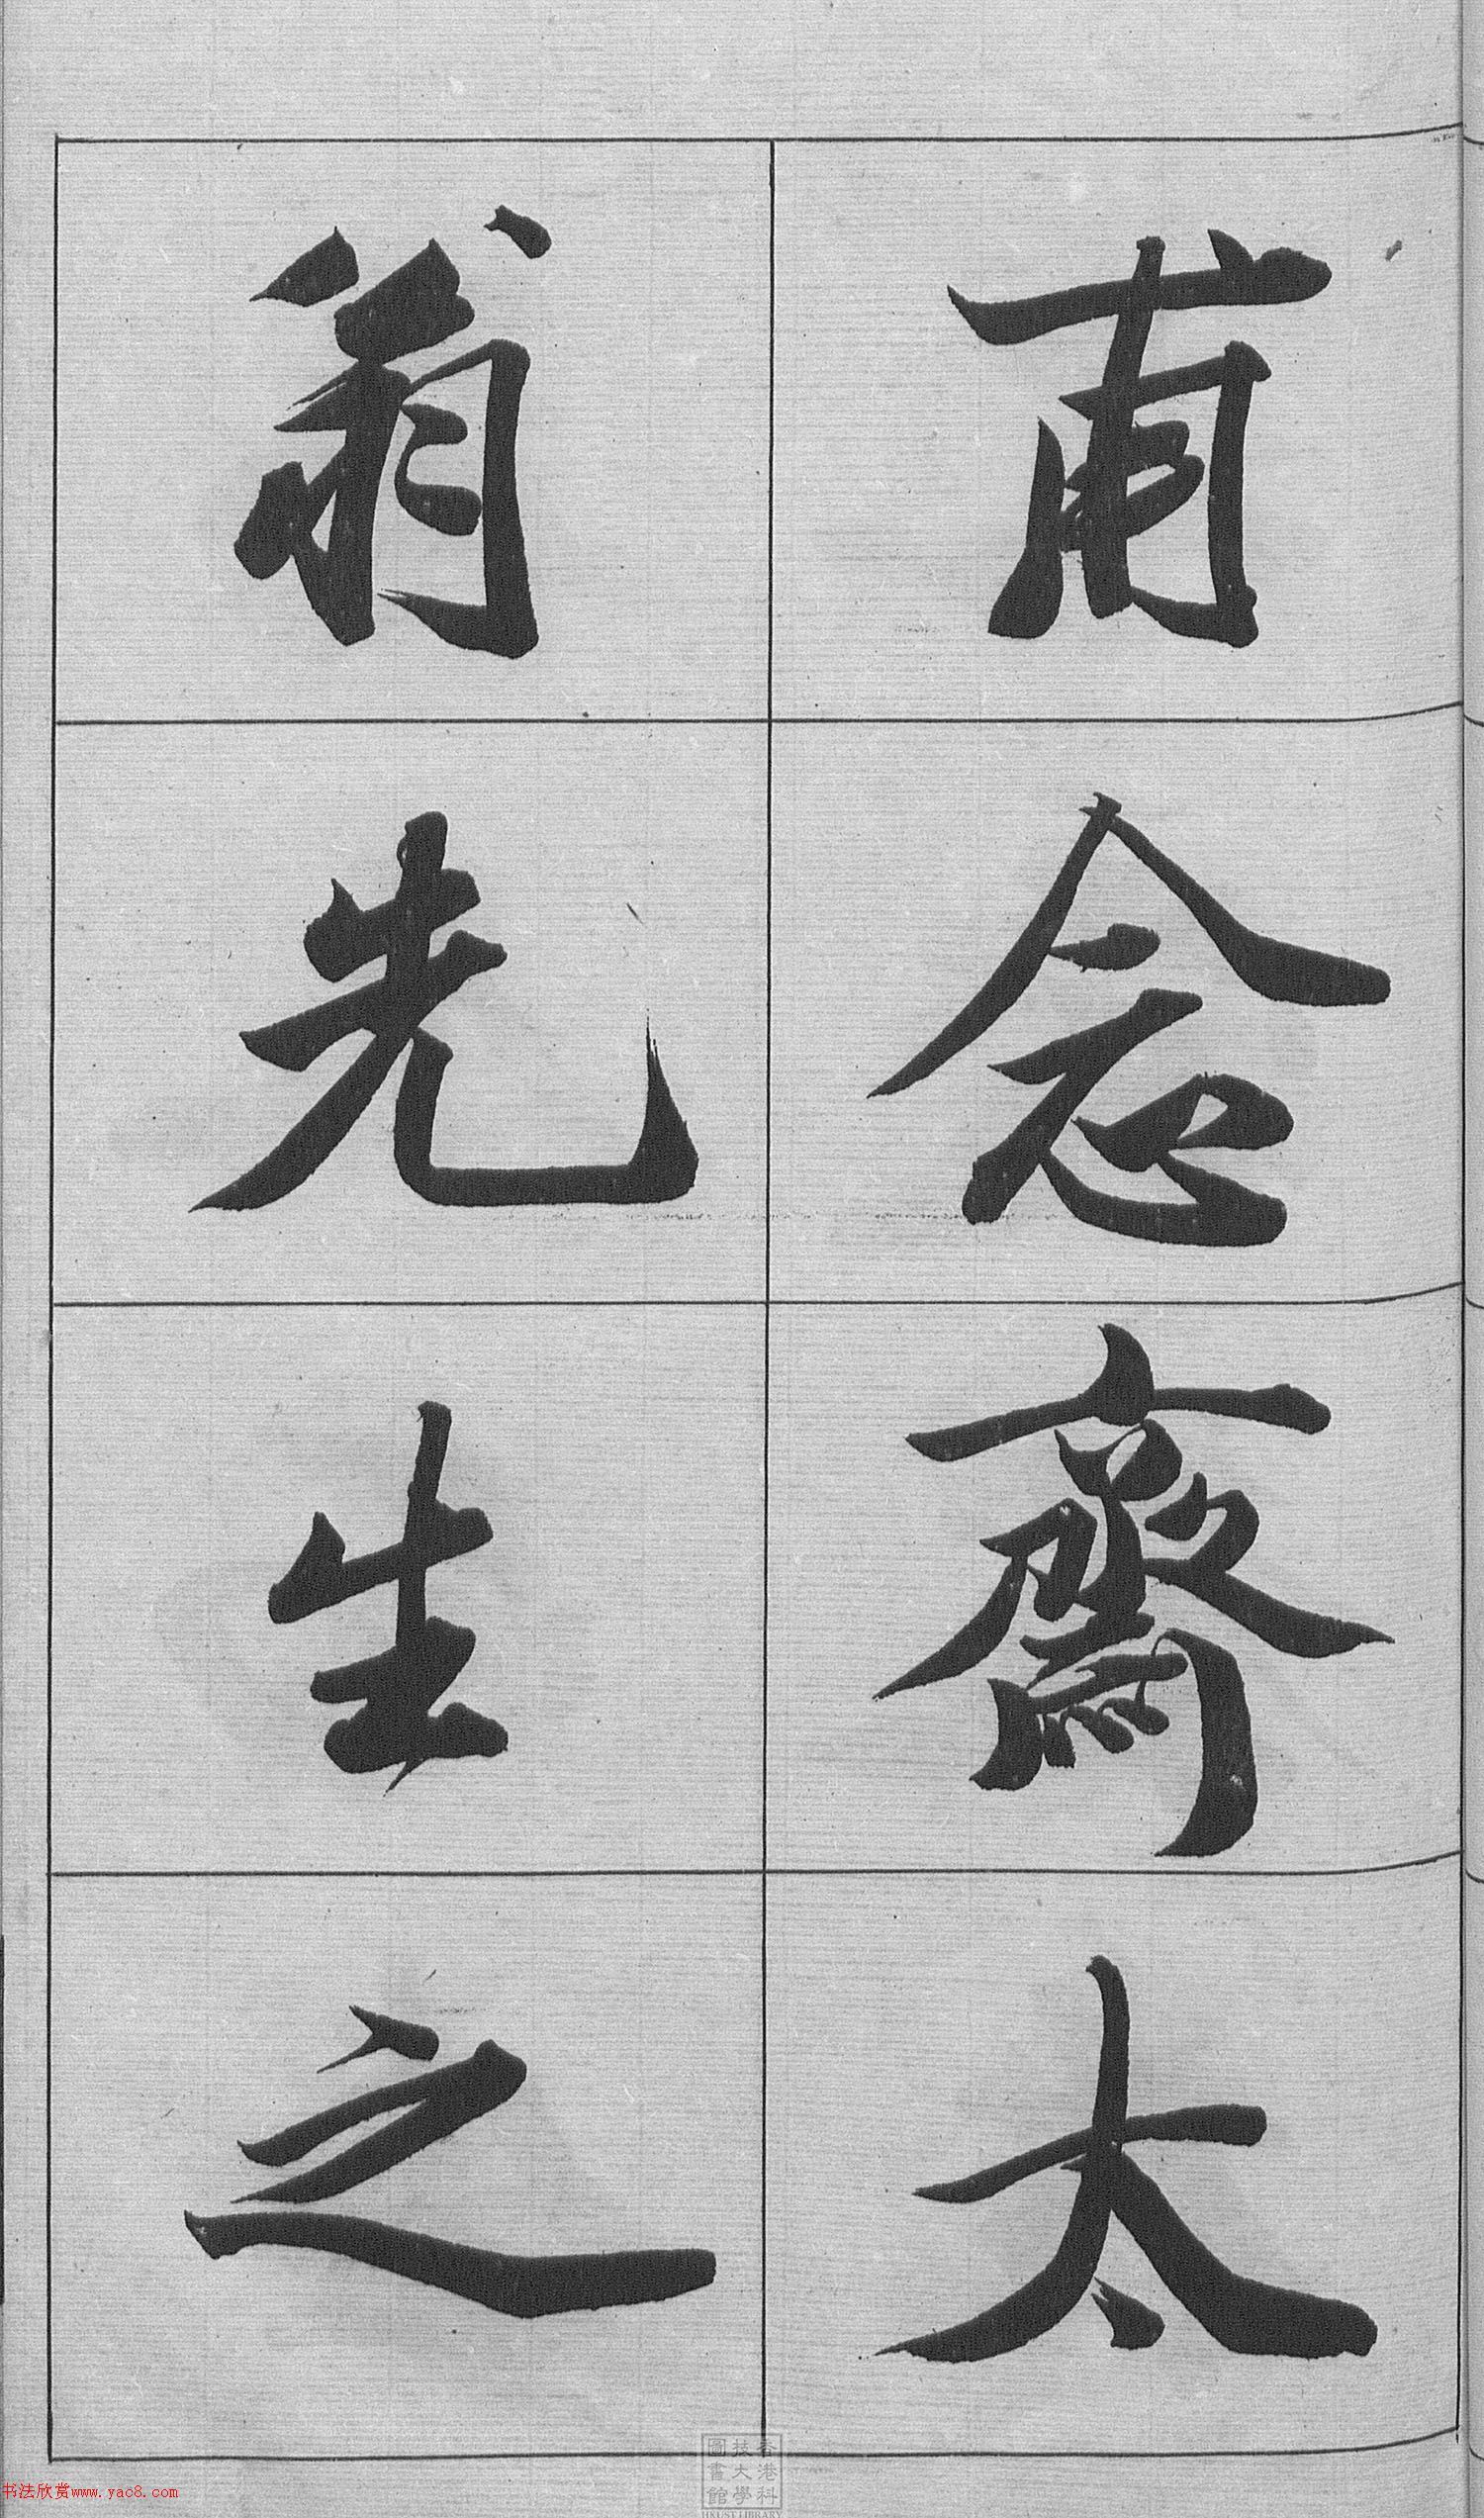 甫念齋太
翁先生之
书法欣赏www.yac8.com
香港科技大學圖書館
HKUST LIBRARY